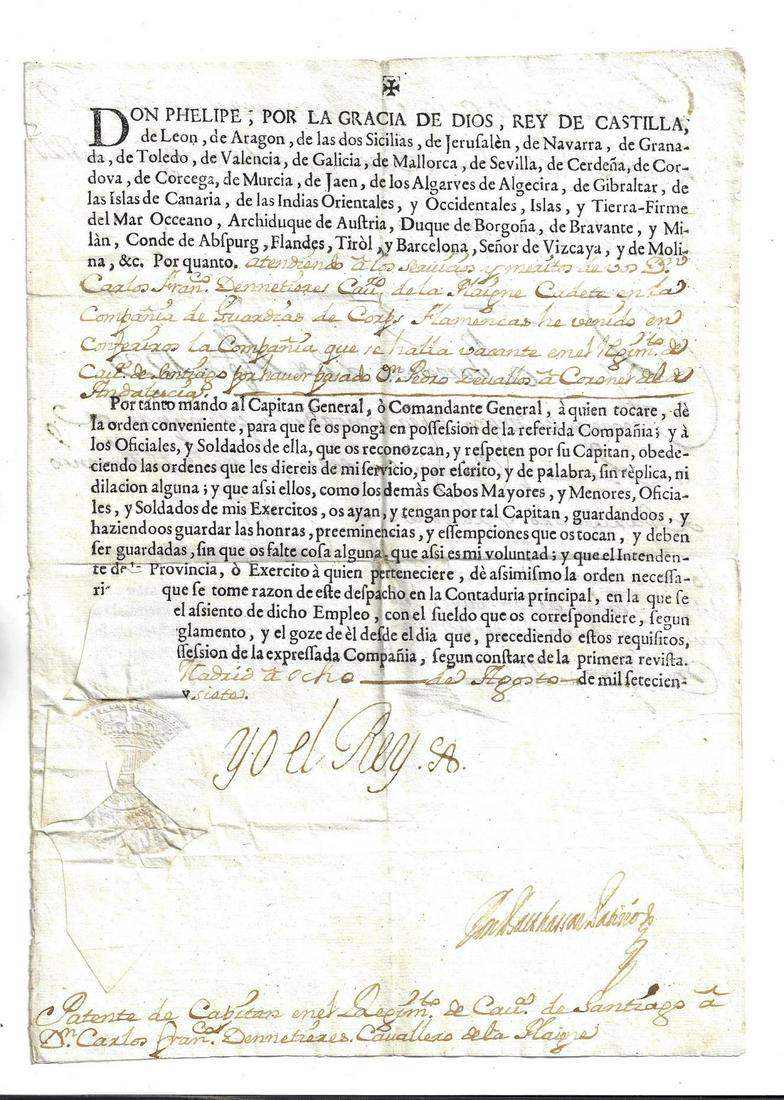 DON PHELIPE, POR LA GRACIA DE DIOS, REY DE CASTILLA,
de Leon, de Aragon, de las dos Sicilias, de Jerusalèn, de Navarra, de Grana-
da, de Toledo, de Valencia, de Galicia, de Mallorca, de Sevilla, de Cerdeña, de Cor-
dova, de Corcega, de Murcia, de Jaen, de los Algarves de Algecira, de Gibraltar, de
las Islas de Canaria, de las Indias Orientales, y Occidentales, Islas, y Tierra-Firme
del Mar Occeano, Archiduque de Austria, Duque de Borgoña, de Bravante, y Mi-
làn, Conde de Abspurg, Flandes, Tiròl, y Barcelona, Señor de Vizcaya, y de Moli-
na, &c. Por quanto. atendiendo à los servicios y meritos de vos Dn
Carlos Franco. Dennetieres Cauro de la Plaigne Cadete en la
Compañia de Guardias de Corps Flamencas he venido en
Conferiros la Compañia que se halla vacante en el Regimto de
Caua de Santiago por haver pasado Dn Pedro Zevallos à Coronel del de
Andalucia.
Por tanto mando al Capitan General, ò Comandante General, à quien tocare, dè
la orden conveniente, para que se os ponga en possession de la referida Compañia; y à
los Oficiales, y Soldados de ella, que os reconozcan, y respeten por su Capitan, obede-
ciendo las ordenes que les diereis de mi servicio, por escrito, y de palabra, sin rèplica, ni
dilacion alguna; y que assi ellos, como los demàs Cabos Mayores, y Menores, Oficia-
les, y Soldados de mis Exercitos, os ayan, y tengan por tal Capitan, guardandoos, y
haziendoos guardar las honras, preeminencias, y essempciones que os tocan, y deben
ser guardadas, sin que os falte cosa alguna, que assi es mi voluntad; y que el Intenden-
te de la Provincia, ò Exercito à quien perteneciere, dè assimismo la orden necessa-
ri que se tome razon de este despacho en la Contaduria principal, en la que se
el assiento de dicho Empleo, con el sueldo que os correspondiere, segun
glamento, y el goze de èl desde el dia que, precediendo estos requisitos,
ssession de la expressada Compañia, segun constare de la primera revista.
Madrid à ocho de Agosto de mil setecien-
y siete.
Yo el Rey.
Patente de Capitan en el Regimto. de Caua. de Santiago à
Dn. Carlos Franco. Dennetieres Cavallero de la Plaigne